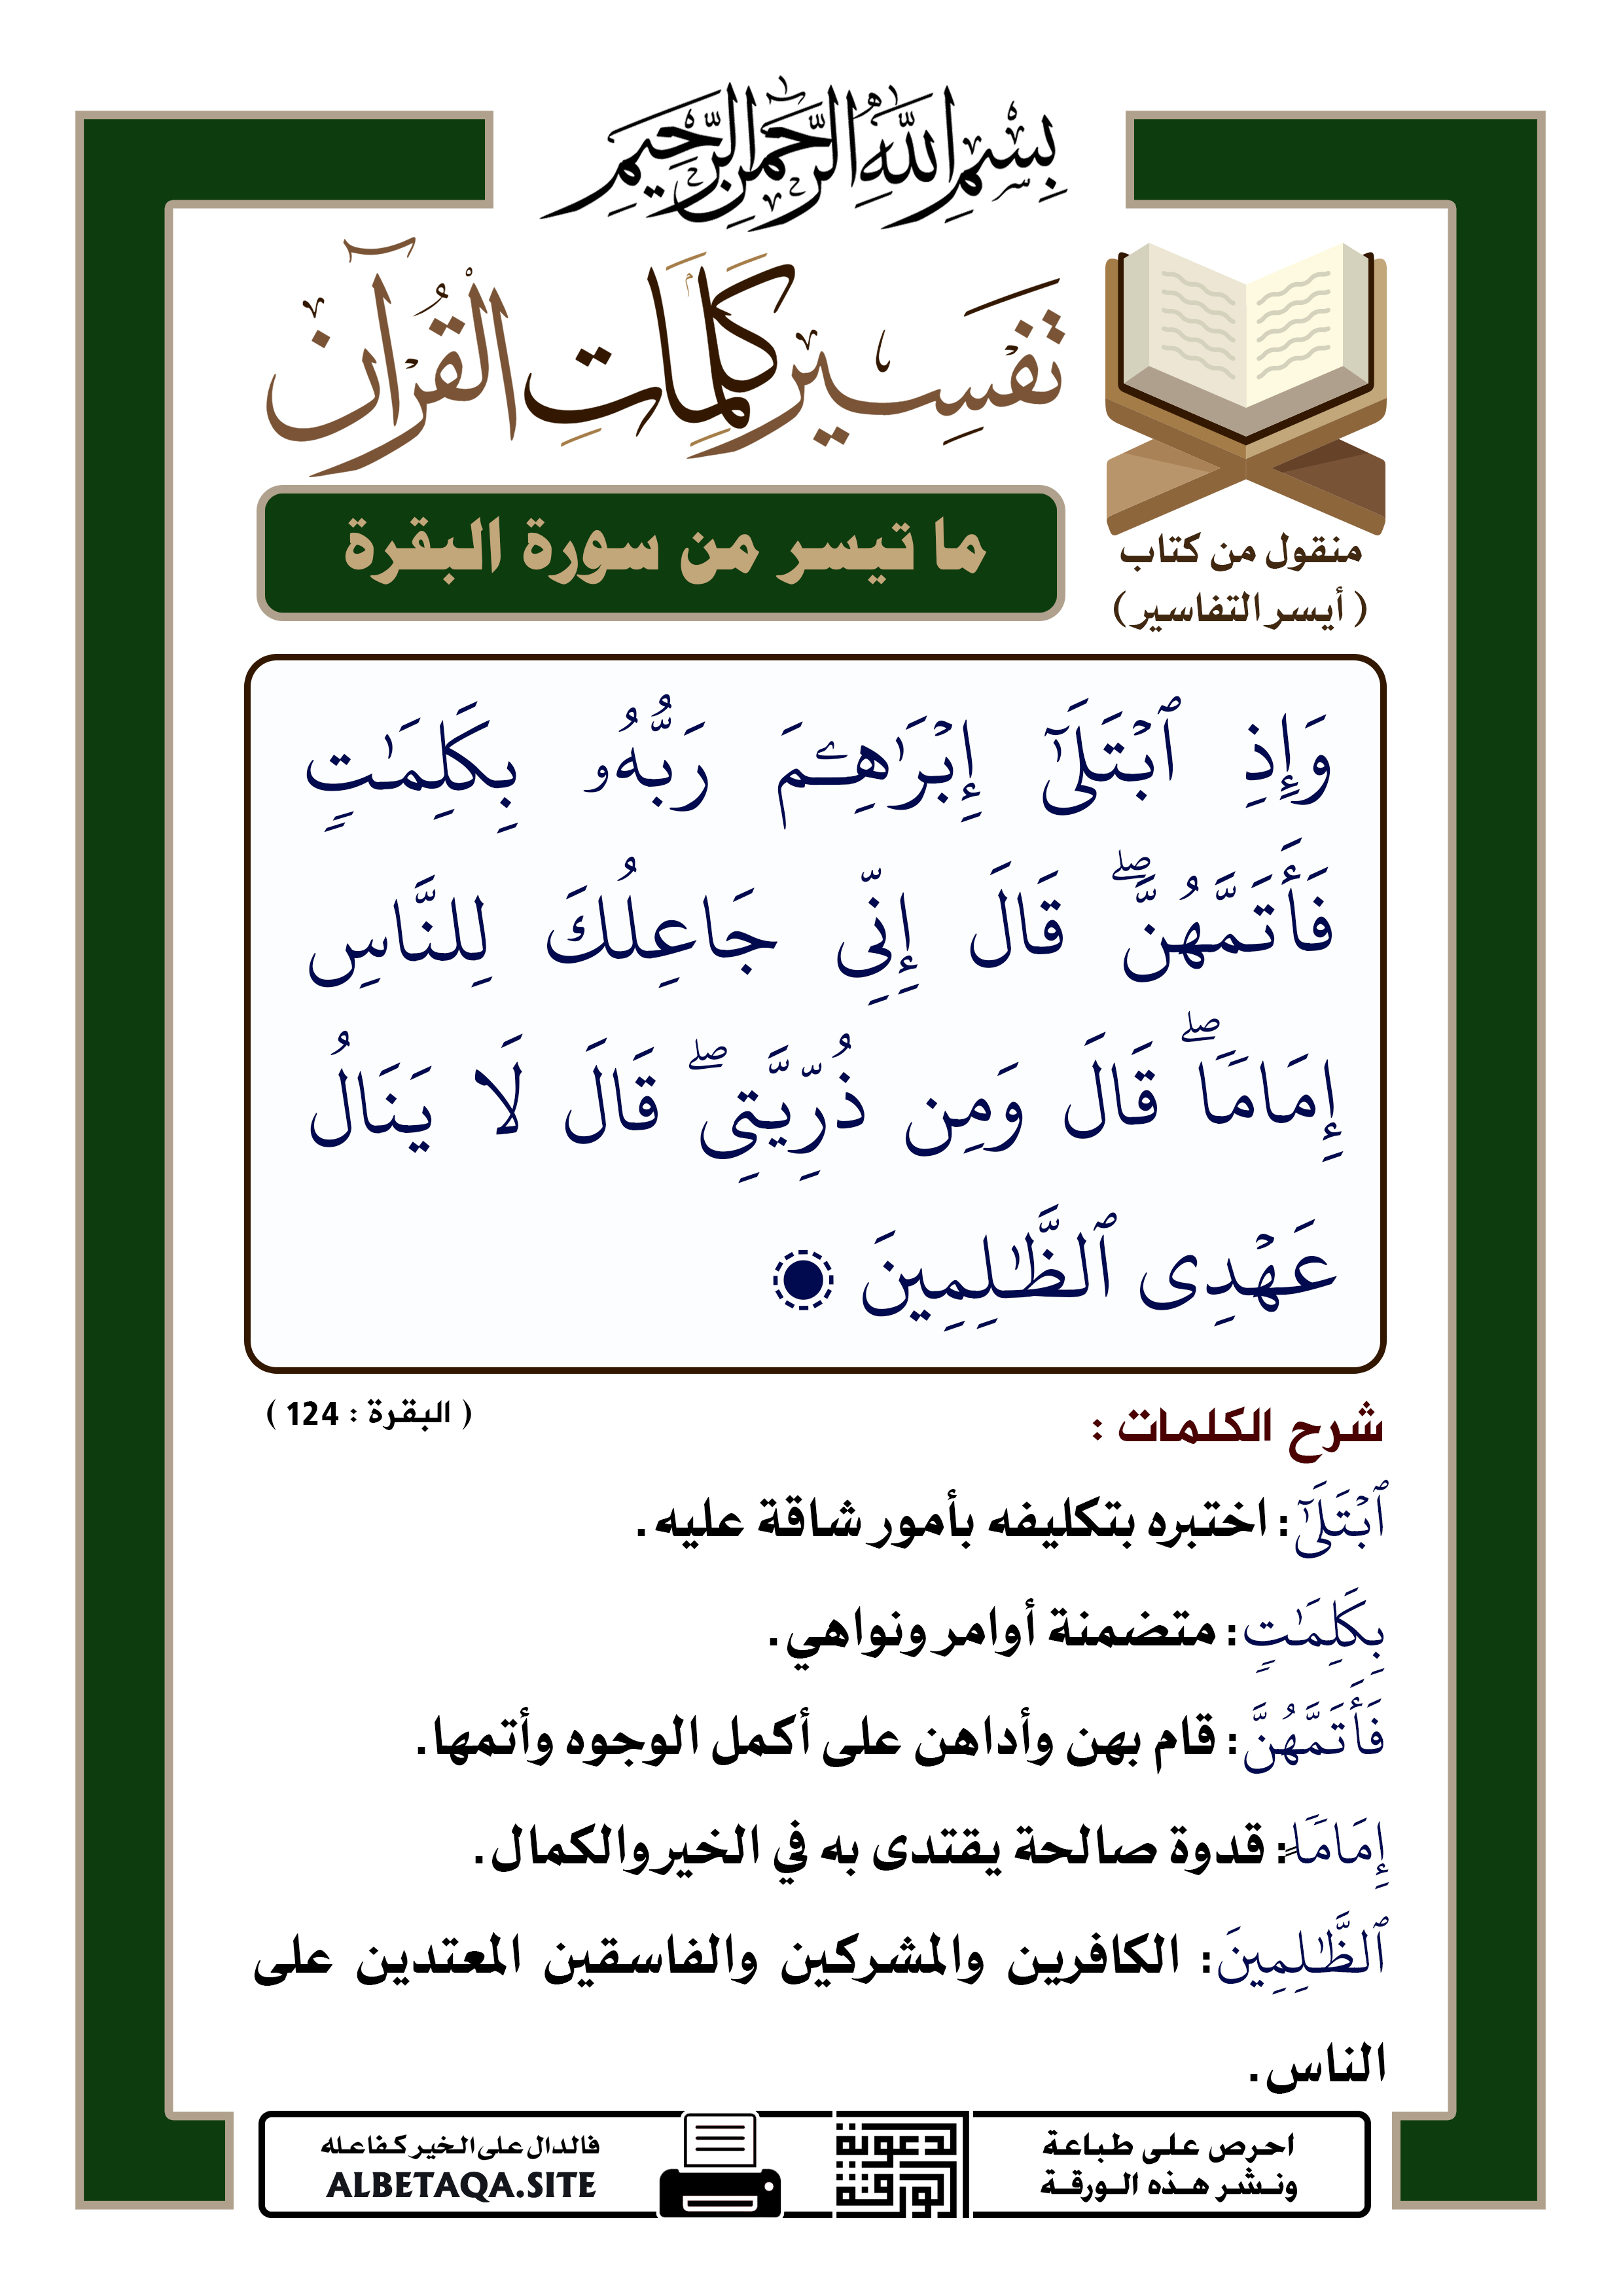 بِسْمِ اللَّهِ الرَّحْمَٰنِ الرَّحِيمِ
تَفْسِير كَلِمَاتِ القُرْآن
منقول من كتاب
( أيسر التفاسير )
ما تيسر من سورة البقرة
وَإِذِ ٱبۡتَلَىٰٓ إِبۡرَٰهِـۧمَ رَبُّهُۥ بِكَلِمَٰتٖ
فَأَتَمَّهُنَّۖ قَالَ إِنِّي جَاعِلُكَ لِلنَّاسِ
إِمَامٗاۖ قَالَ وَمِن ذُرِّيَّتِيۖ قَالَ لَا يَنَالُ
عَهۡدِي ٱلظَّٰلِمِينَ
( البقرة : 124 )
شرح الكلمات :
ٱبۡتَلَىٰٓ : اختبره بتكليفه بأمور شاقة عليه .
بِكَلِمَٰتٖ : متضمنة أوامر ونواهي .
فَأَتَمَّهُنَّ : قام بهن وأداهن على أكمل الوجوه وأتمها .
إِمَامٗا : قدوة صالحة يقتدى به في الخير والكمال .
ٱلظَّٰلِمِينَ : الكافرين والمشركين والفاسقين المعتدين على
الناس .
احرص على طباعة
ونشر هذه الورقة
الورقة
الدعوية
فالدال على الخير كفاعله
ALBETAQA.SITE